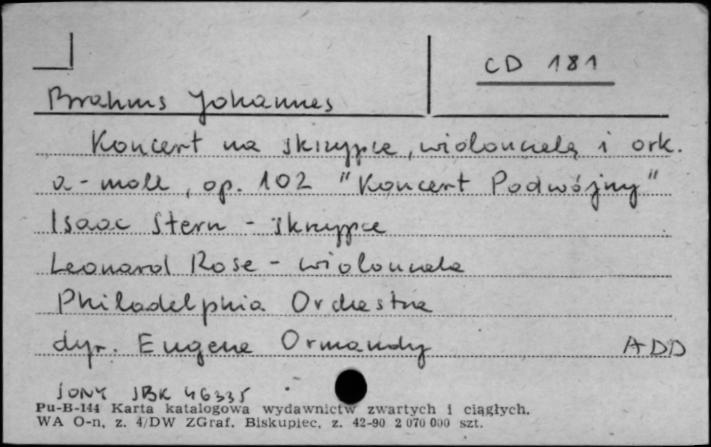 CD 181
Brahms Johannes
Koncert na skrzypce, wiolonczelę i ork.
a-moll, op. 102 "Koncert Podwójny"
Isaac Stern - skrzypce
Leonard Rose - wiolonczela
Philadelphia Orchestra
dyr. Eugene Ormandy ADD
SONY SBK 46335
Pu-B-144 Karta katalogowa wydawnictw zwartych i ciągłych.
WA O-n, z. 4/DW ZGraf. Biskupiec, z. 42-90 2 070 000 szt.